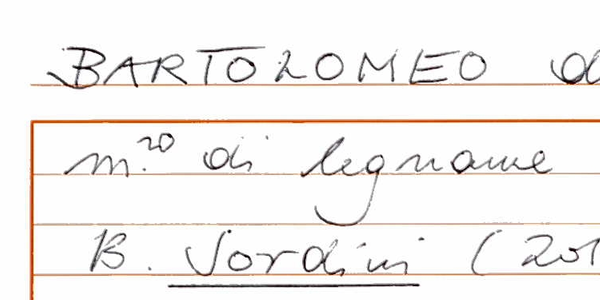 BARTOLOMEO d
m.ro di legname
B. Jordini (201